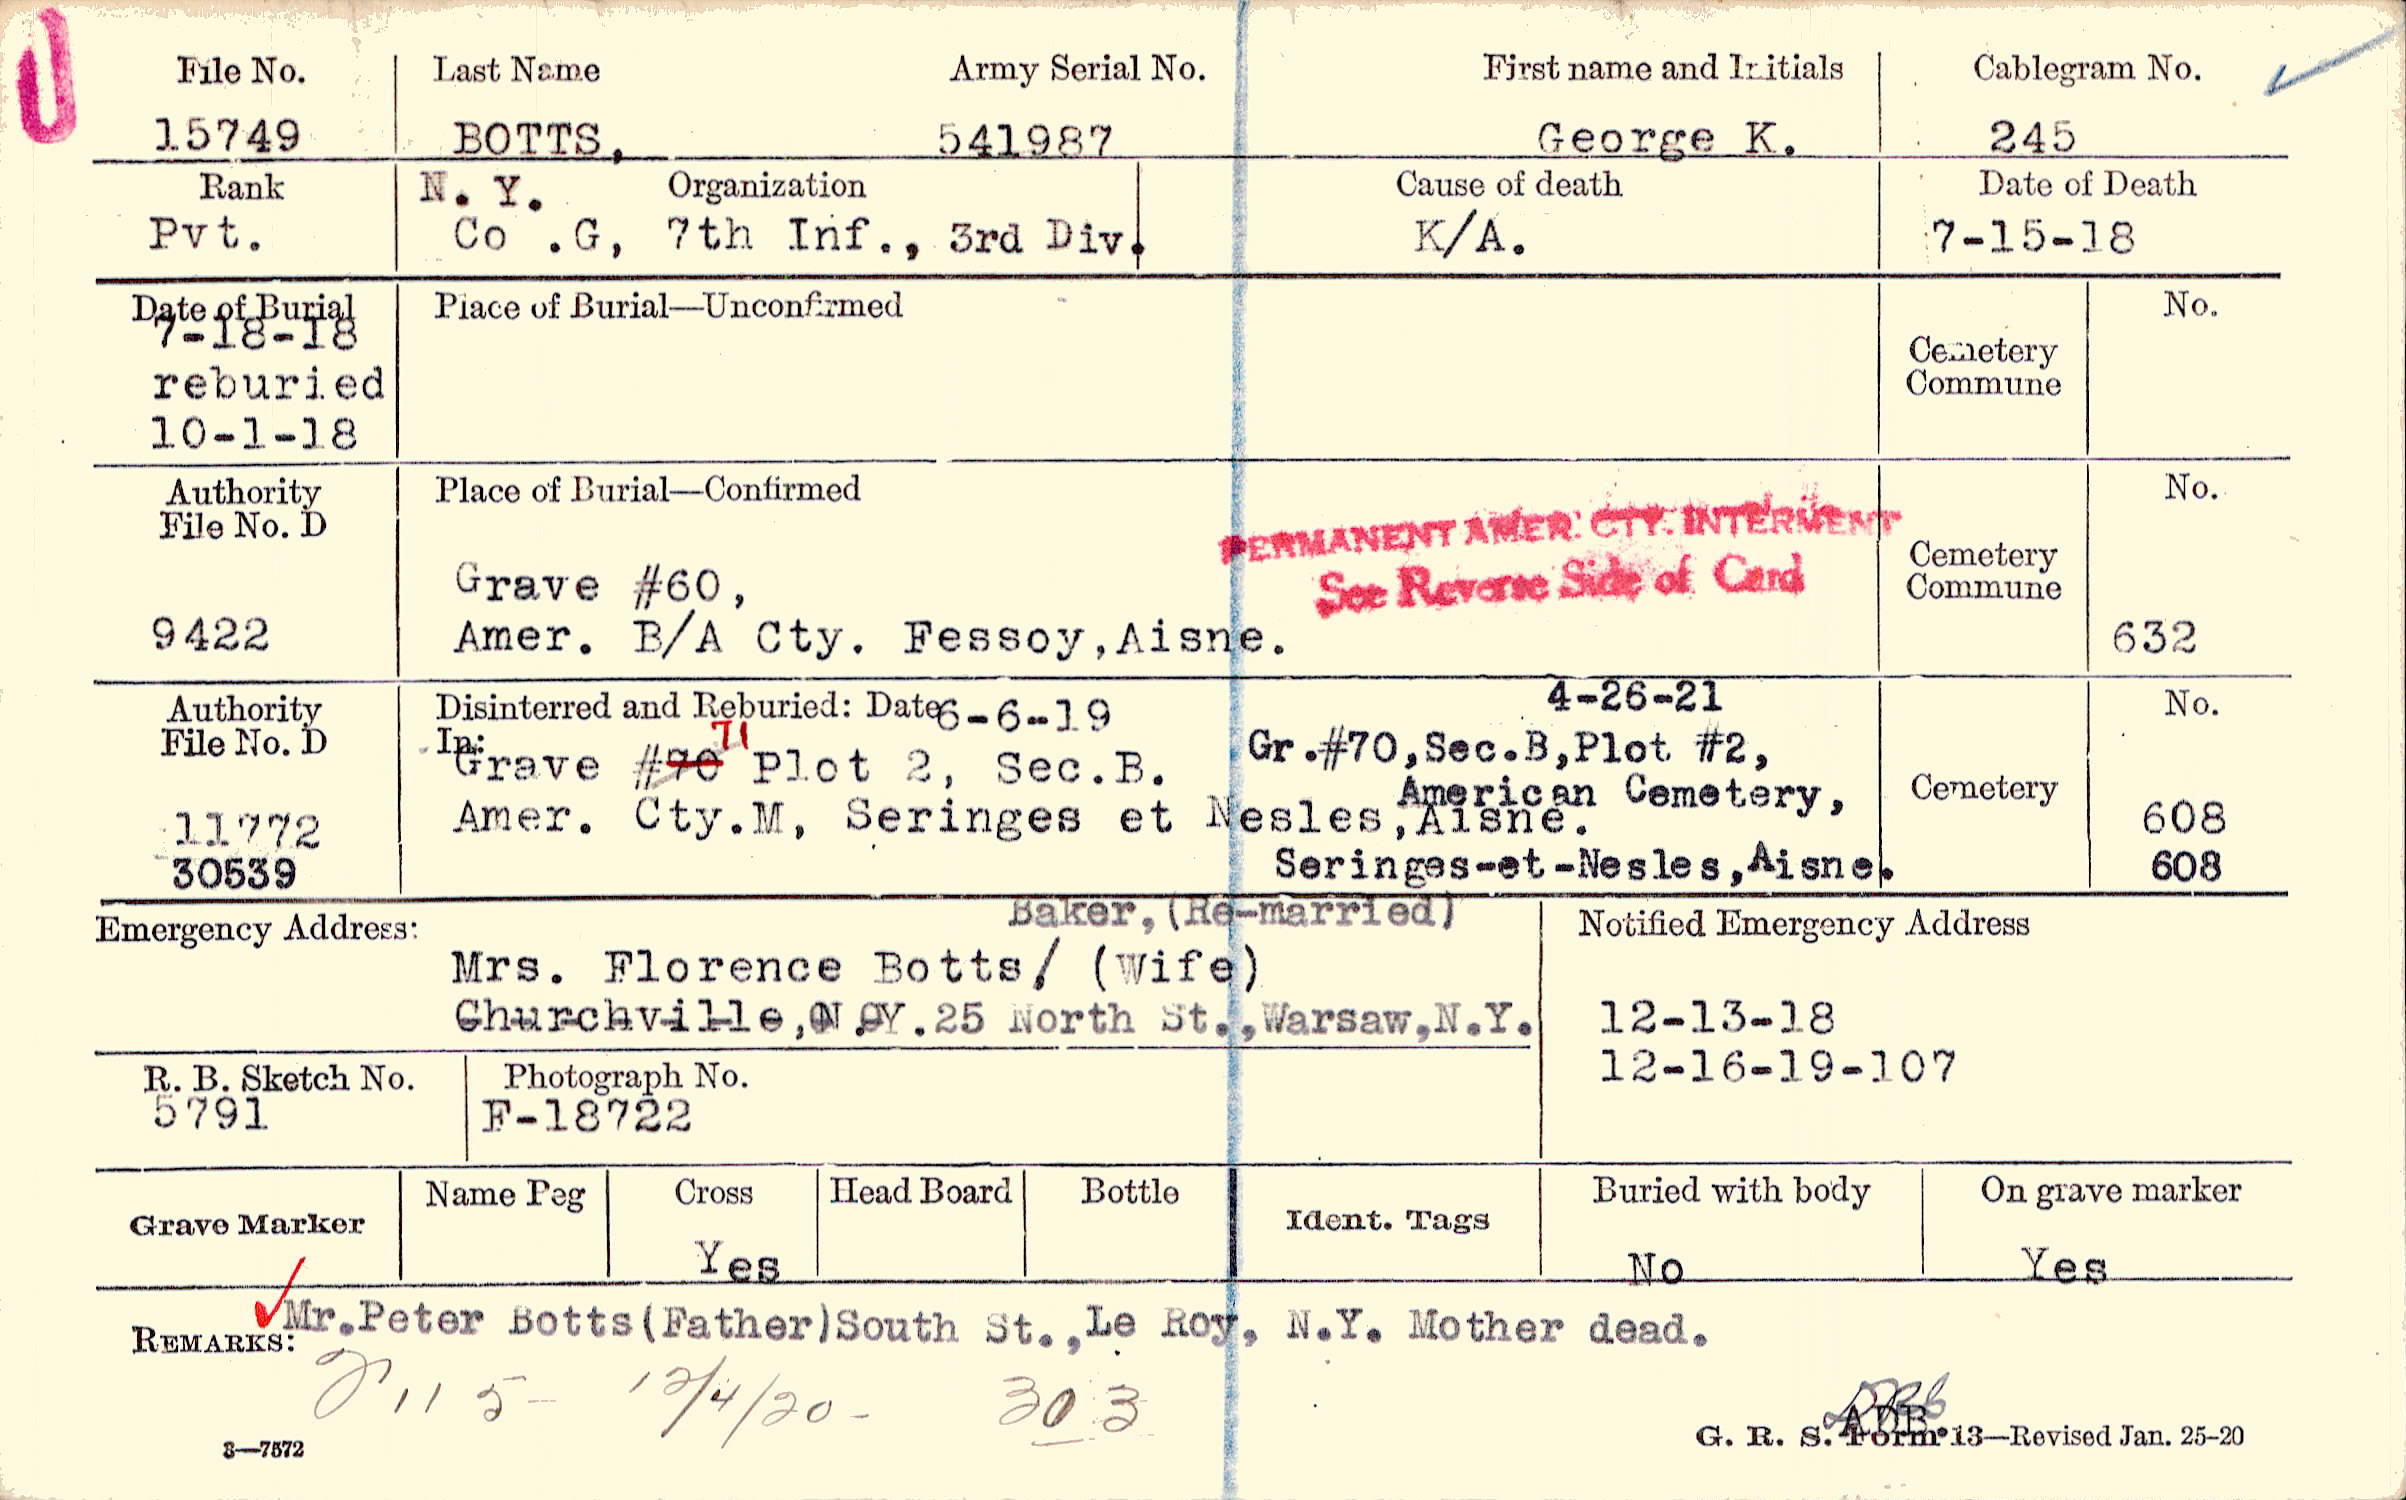 File No. Last Name Army Serial No. First name and Initials Cablegram No.
15749 BOTTS, 541987 George K. 245
Rank N. Y. Organization Cause of death Date of Death
Pvt. Co .G, 7th Inf., 3rd Div. K/A. 7-15-18
Date of Burial Place of Burial—Unconfirmed No.
7-18-18
Cemetery
reburied Commune
10-1-18
Authority Place of Burial—Confirmed No.
File No. D
PERMANENT AMER. CTY. INTERMENT
Cemetery
Grave #60, See Reverse Side of Card Commune
9422 Amer. B/A Cty. Fessoy,Aisne. 632
4-26-21
Authority Disinterred and Reburied: Date 6-6-19 No.
File No. D In: 71
Grave #70 Plot 2, Sec.B. Gr.#70,Sec.B,Plot #2,
American Cemetery, Cemetery
11772 Amer. Cty.M, Seringes et Nesles,Aisne. 608
30539 Seringes-et-Nesles,Aisne. 608
Baker,(Re-married)
Emergency Address: Notified Emergency Address
Mrs. Florence Botts/ (Wife)
Churchville,N.Y.25 North St.,Warsaw,N.Y. 12-13-18
12-16-19-107
R. B. Sketch No. Photograph No.
5791 F-18722
Name Peg Cross Head Board Bottle Buried with body On grave marker
Grave Marker Ident. Tags
Yes No Yes
Mr.Peter Botts(Father)South St.,Le Roy, N.Y. Mother dead.
REMARKS:
115- 12/4/20- 303
ADB.
3—7572 G. R. S. Form 13—Revised Jan. 25-20